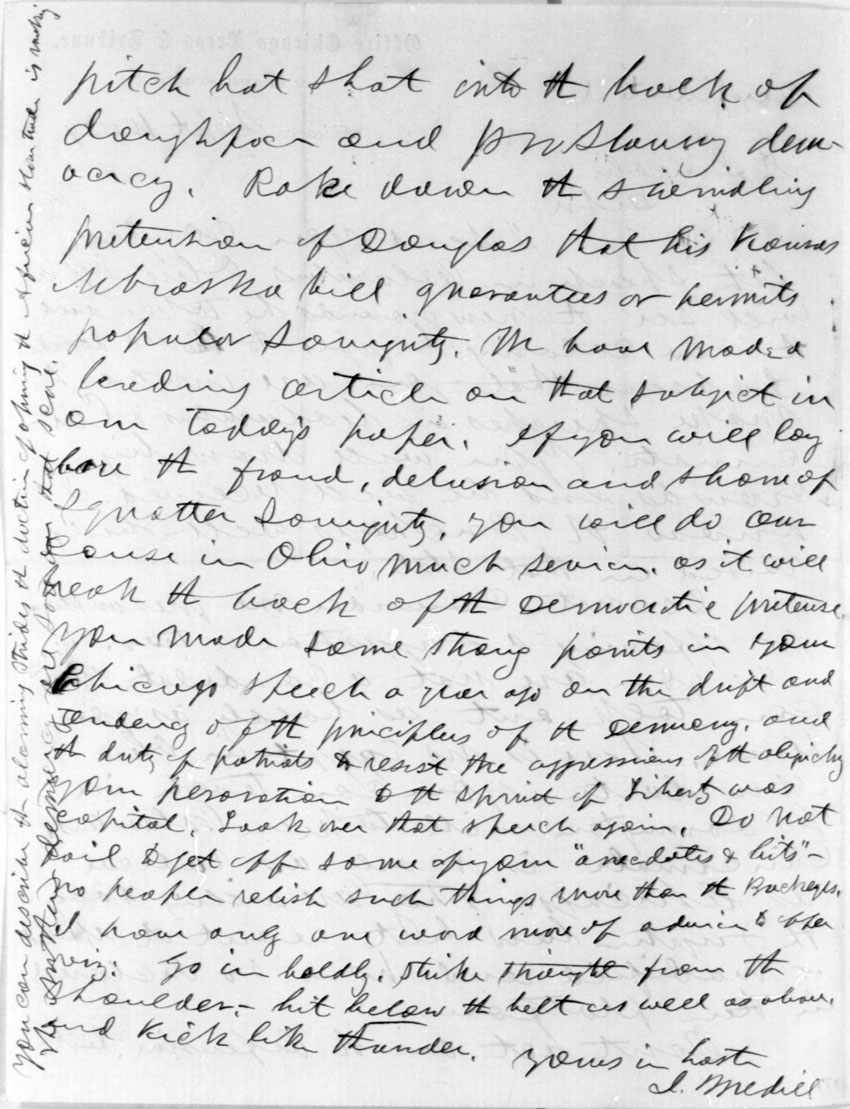 pitch hot shot into th back of
doughface and proslavery dem-
ocracy. Rake down th swindling
pretension of Douglas that his Kansas
Nebraska bill guarantees or permits
popular Sovignty. We have made a
leading article on that subject in
our today's paper. If you will lay
bare th fraud, delusion and sham of
Squatter Sovignty, you will do our
cause in Ohio much sevice. as it will
reak th back of th Democratic pretense.
You made some strong points in your
Chicago speech a year ago on the drift and
tendency of th principles of th Democracy. and
th duty of patriots to resist the aggressions of th oligarchy
your peroration to th spirit of Liberty was
capital. Look over that speech again. Do not
fail to get off some of your "anecdotes & hits"–
no people relish such things more than th Buckeyes.
I have only one word more of advice to offer
Go in boldly, strike straight from th
shoulder,– hit below th belt as well as above.
and kick like thunder.
Yours in haste
J. Medill
You can describe th alarming strides th doctrin of opening th African slave trade is making
in Southern democracy
Office Chicago Press & Tribune.